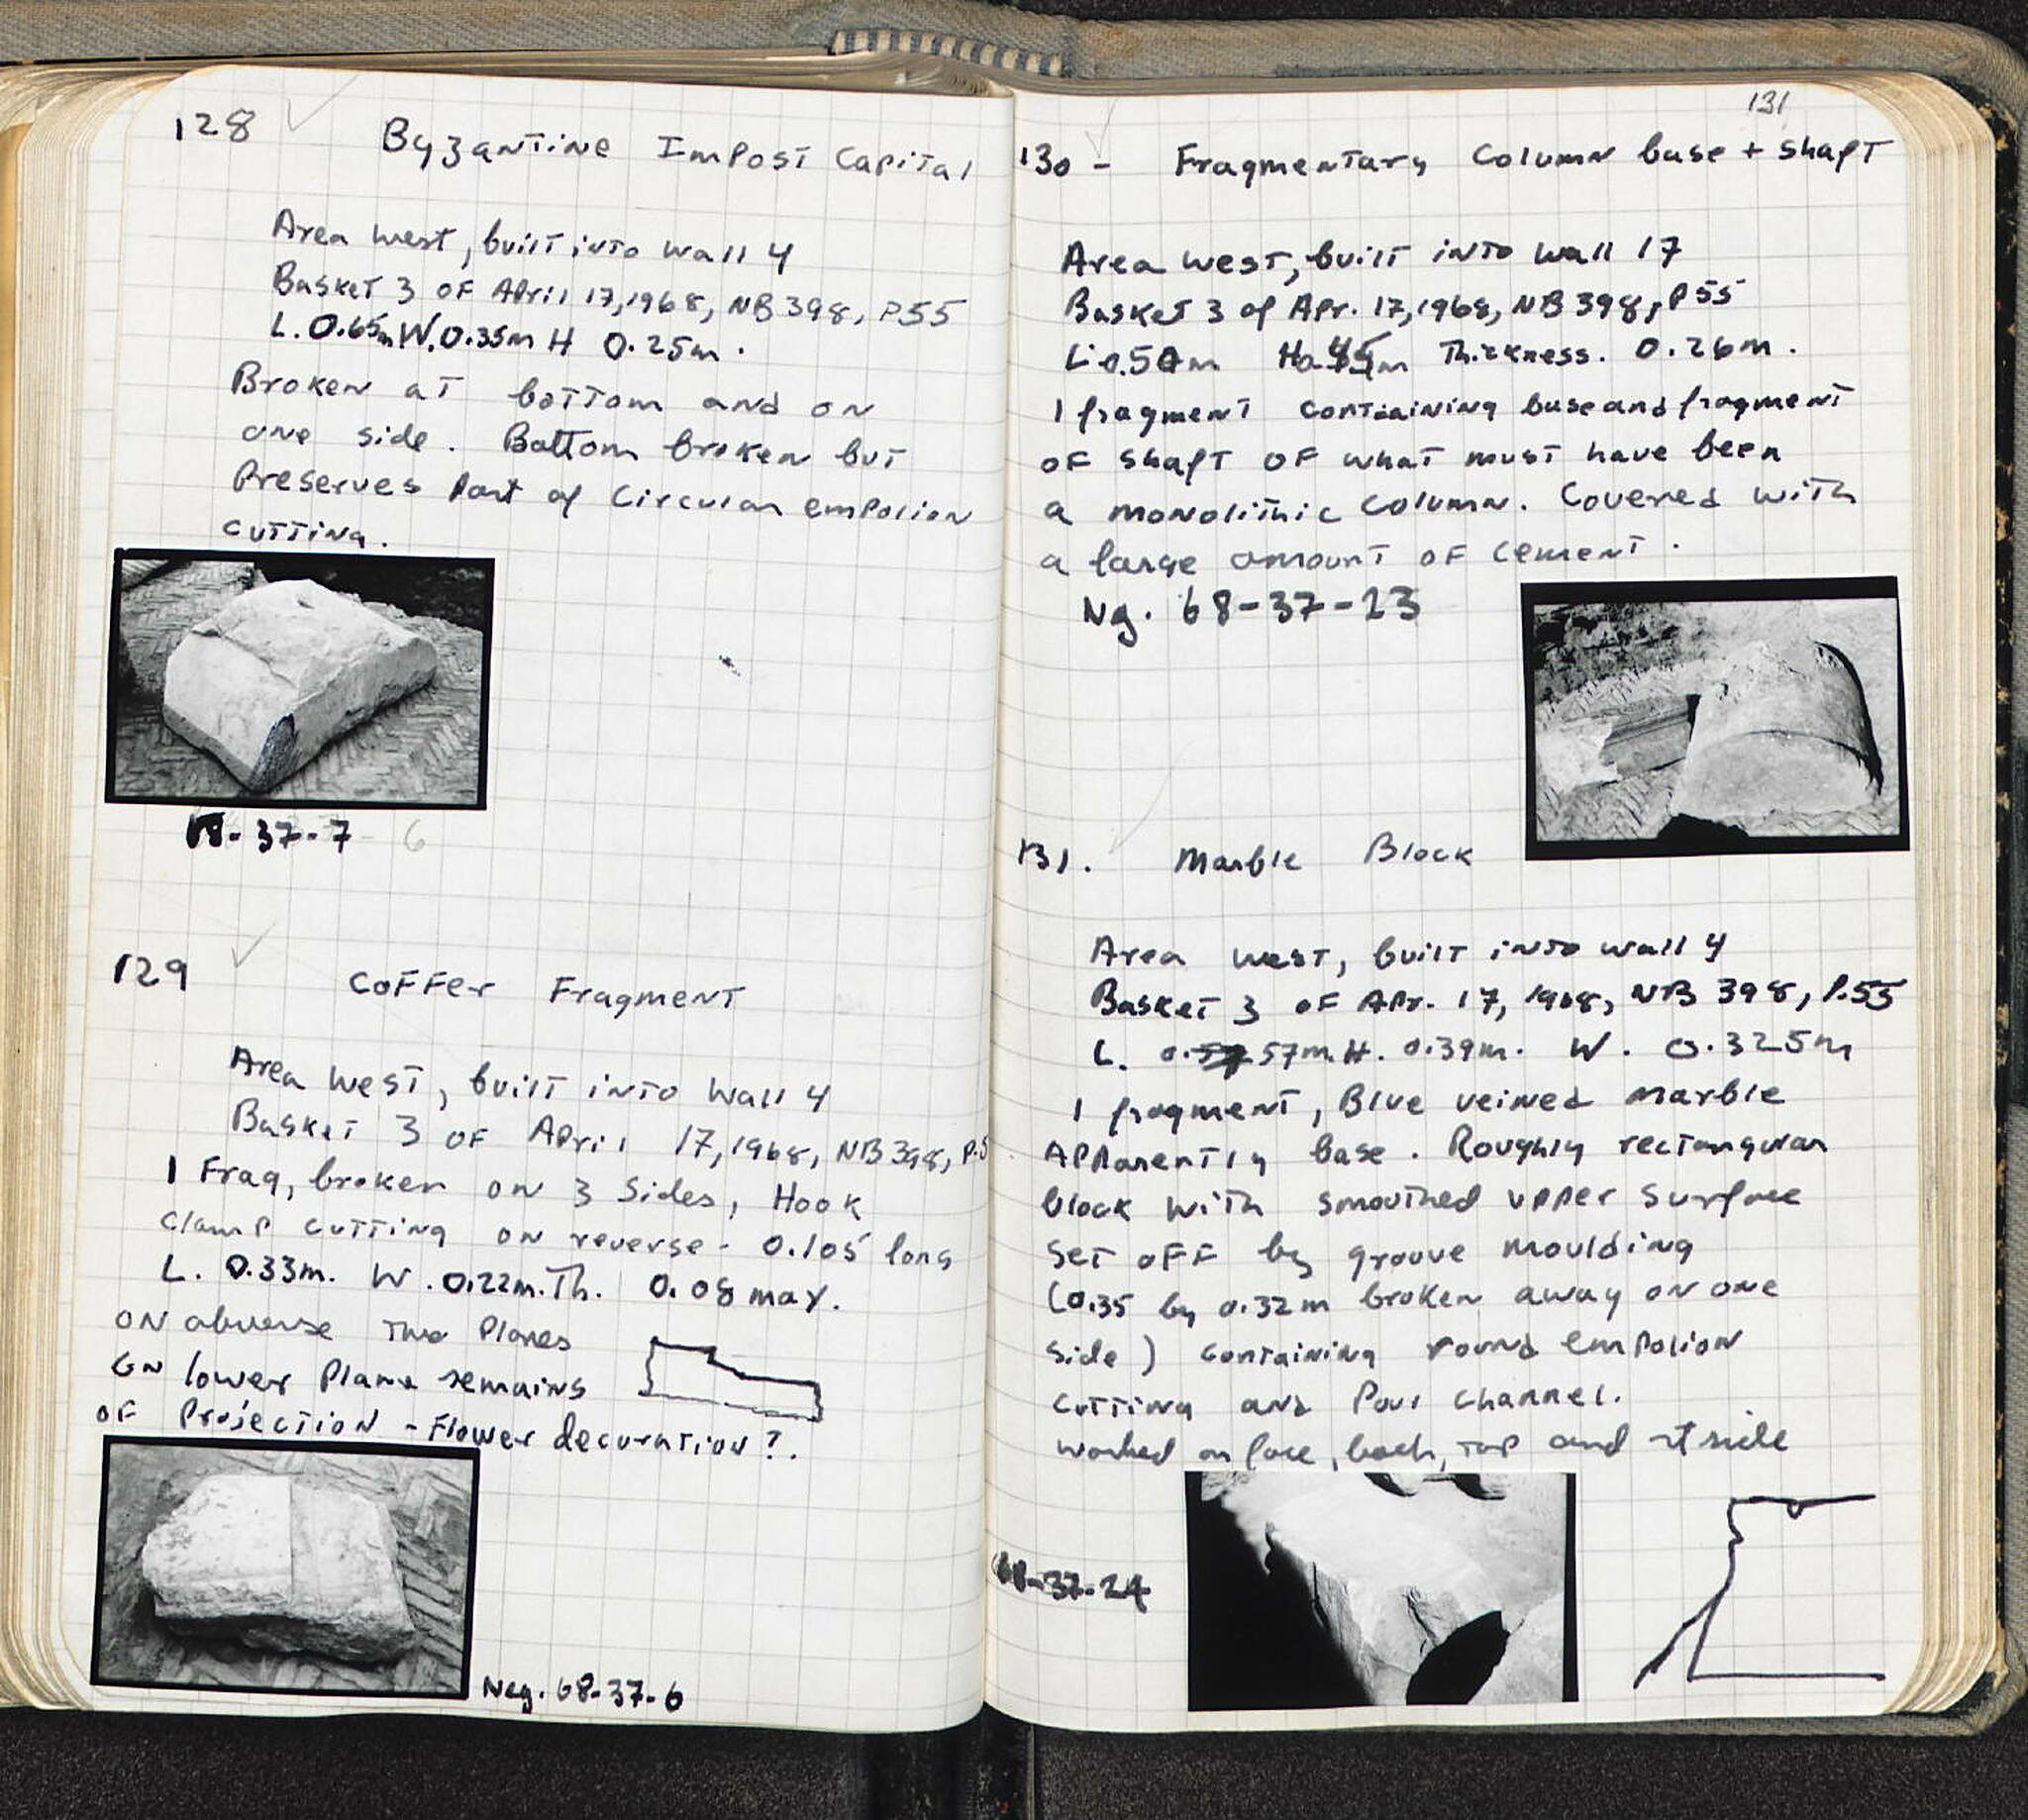 128 Byzantine Impost Capital
Area West, built into Wall 4
Basket 3 of April 17, 1968, NB 398, P55
L. 0.65m W. 0.35m H 0.25m.
Broken at bottom and on
one side. Bottom broken but
Preserves Part of Circular empolion
cutting.
68-37-7 6
129 Coffer Fragment
Area West, built into Wall 4
Basket 3 of April 17, 1968, NB 398, P.5
1 Frag, broken on 3 Sides, Hook
clamp cutting on reverse - 0.105 long
L. 0.33m. W. 0.22m. Th. 0.08 max.
on obverse two Planes
On lower Plane remains
of Projection - Flower decoration?.
Neg. 68-37-6
131
130 - Fragmentary Column base + shaft
Area West, built into Wall 17
Basket 3 of Apr. 17, 1968, NB 398, P55
L. 0.50m Thickness. 0.26m.
1 fragment containing base and fragment
of shaft of what must have been
a monolithic column. Covered with
a large amount of cement.
Ng. 68-37-23
131. Marble Block
Area West, built into Wall 4
Basket 3 of Apr. 17, 1968, NB 398, P.55
L. 0.57m. H. 0.39m. W. 0.325m
1 fragment, Blue veined marble
Apparently base. Roughly rectangular
block with smoothed upper surface
set off by groove moulding
(0.35 by 0.32m broken away on one
side) containing round empolion
cutting and Pour channel.
worked on face, back, top and rt side
68-37-24